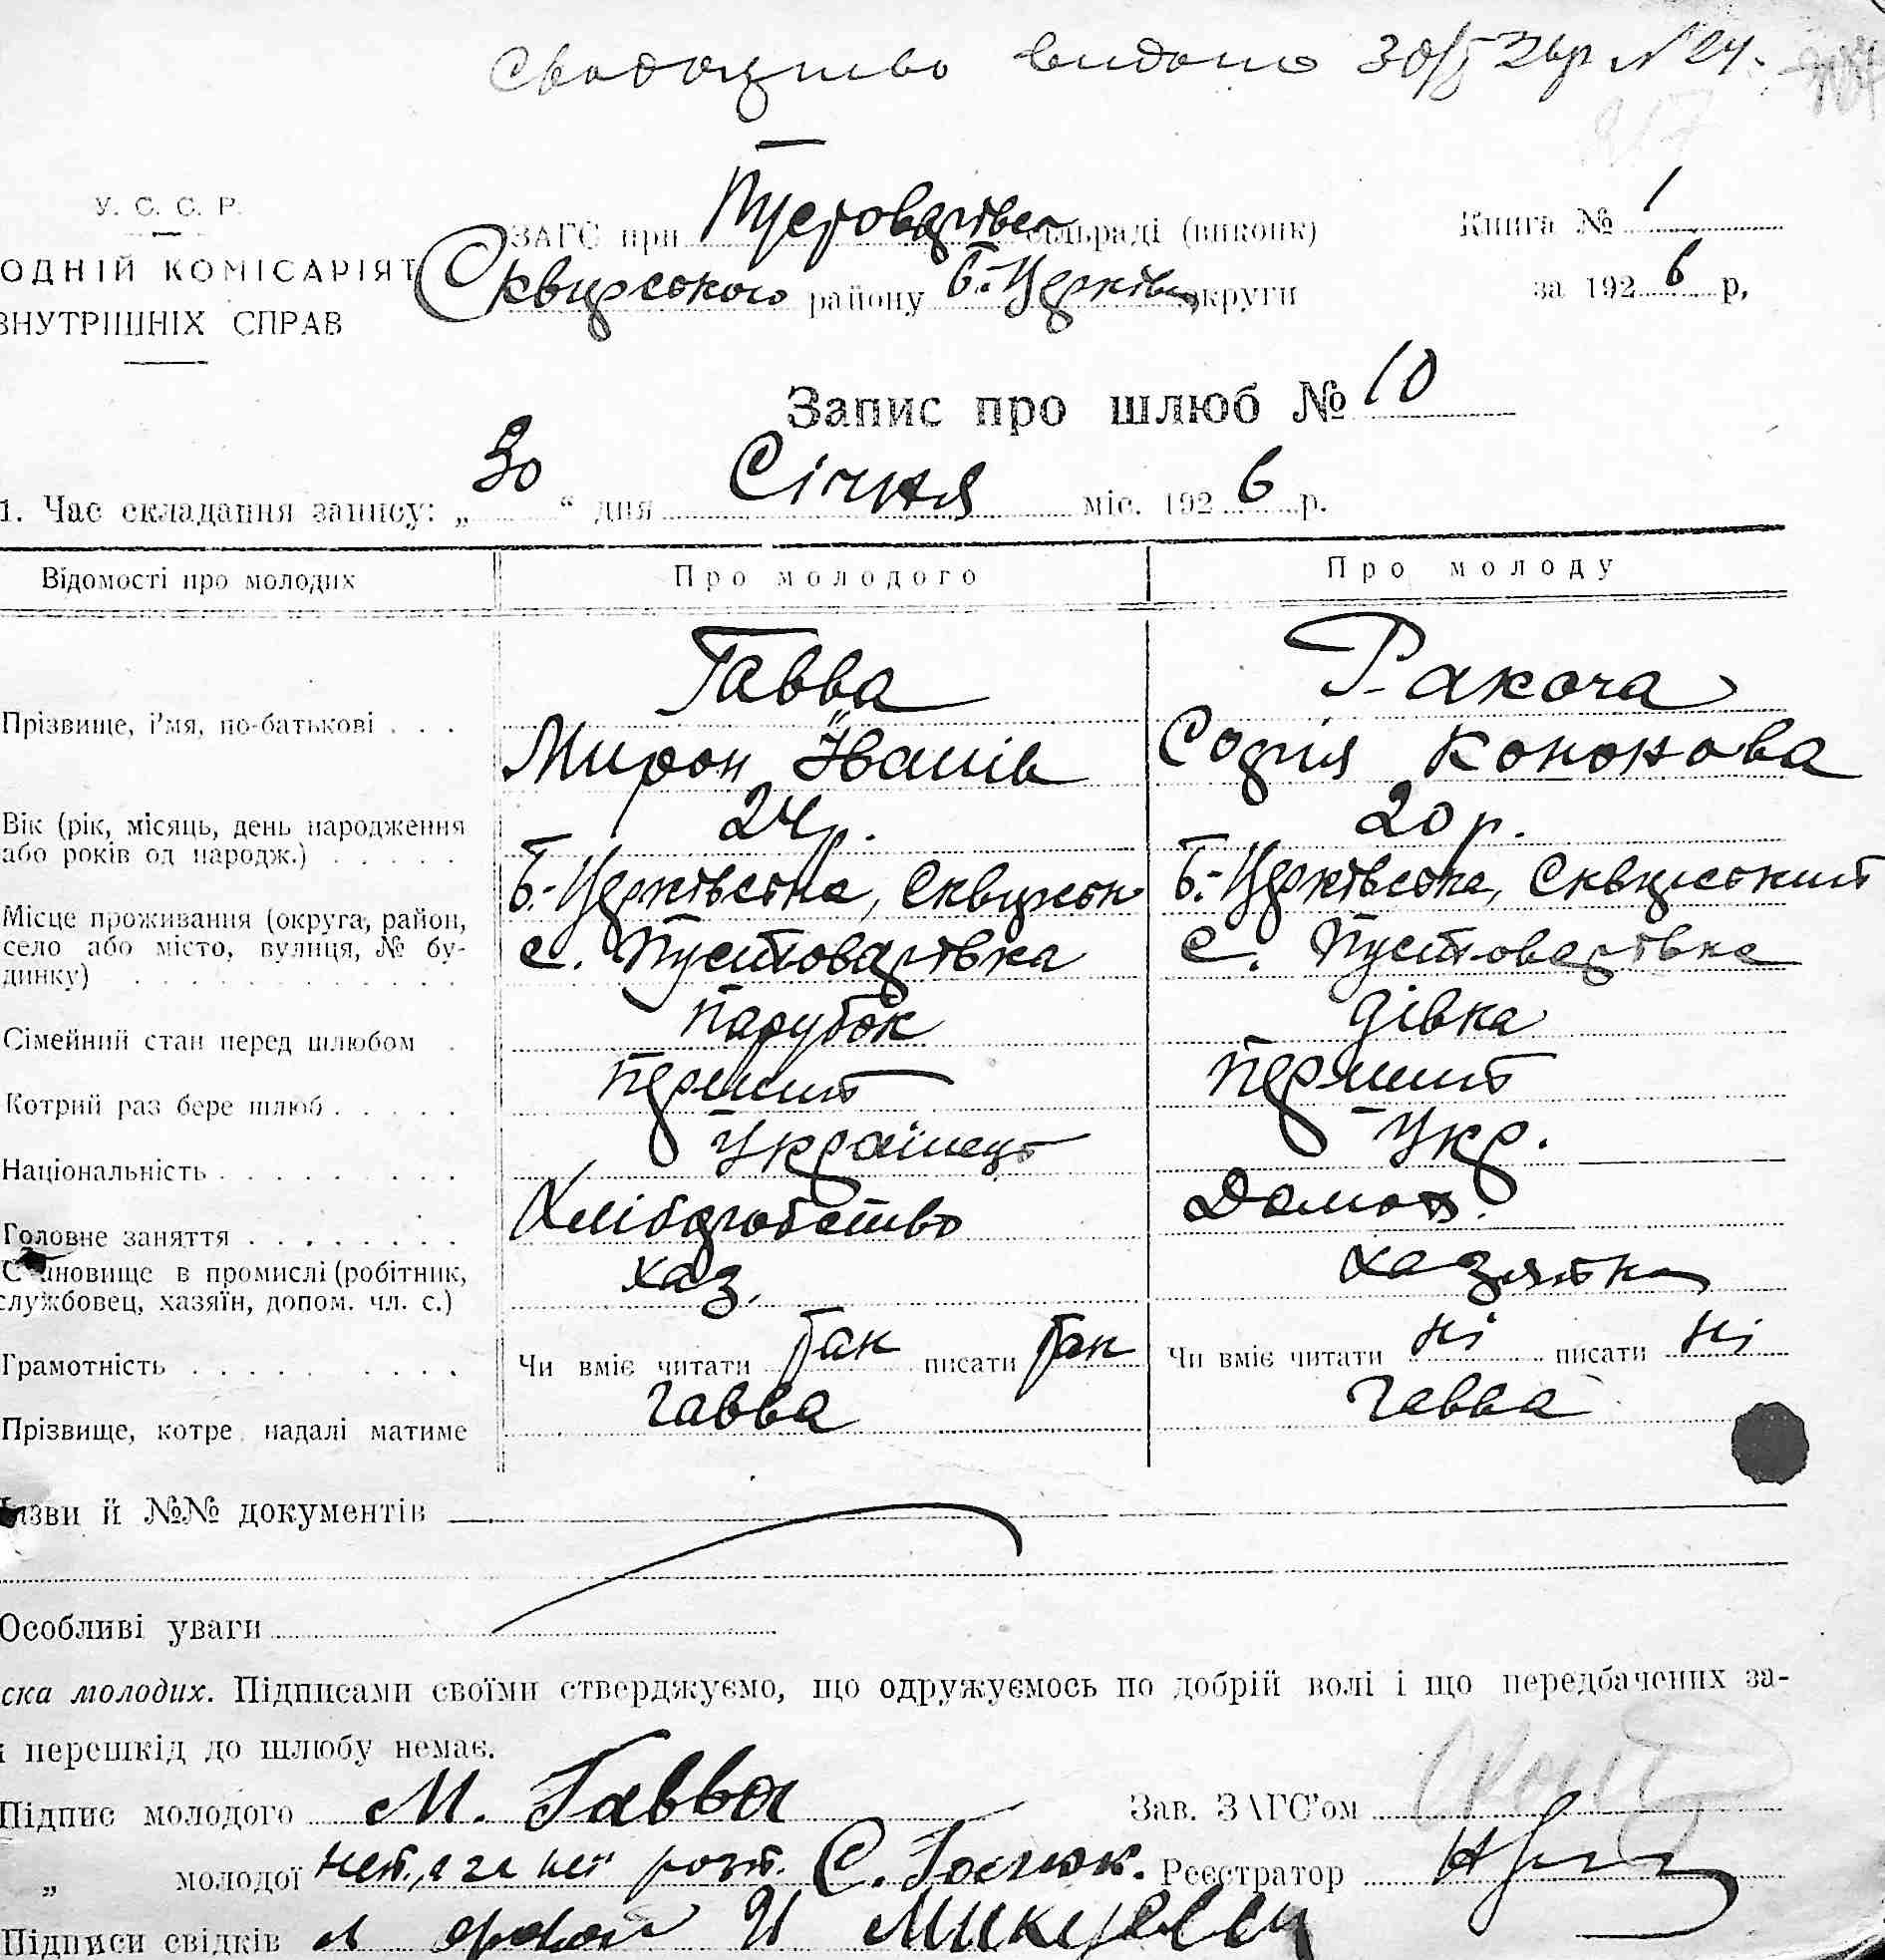 Свидоцтво видано 30/I 26р №24.
У. С. С. Р.
ЗАГС при Пустоварівс сільраді (виконк) Книга № 1
ОДНІЙ КОМІСАРІЯТ Сквирського району Б.-Церківс округи за 1926 р,
ВНУТРІШНІХ СПРАВ
Запис про шлюб № 10
1. Час складання запису: „30“ дня Січня міс. 1926 р.
Відомості про молодих Про молодого Про молоду
Гавва Ракоча
Прізвище, і'мя, по-батькові . . . Мирон Іванів Софія Кононова
Вік (рік, місяць, день народження 24р. 20 р.
або років од народж.) . . . . .
Місце проживання (округа, район, Б.-Церківська, Сквирськ Б.-Церківська, Сквирський
село або місто, вулиця, № бу- с. Пустоварівка с. Пустоварівка
динку) . . . . . . . . . . . .
Сімейний стан перед шлюбом . парубок дівка
Котрий раз бере шлюб . . . . . перший перший
Національність . . . . . . . . . Українець Укр.
Головне заняття . . . . . . . . Хліборобство Домов.
Становище в промислі (робітник, хаз. хазяйка
службовец, хазяїн, допом. чл. с.)
Грамотність . . . . . . . . . . Чи вміє читати так писати так Чи вміє читати ні писати ні
Прізвище, котре надалі матиме Гавва Гавва
азви й №№ документів
Особливі уваги
ска молодих. Підписами своїми стверджуємо, що одружуємось по добрій волі і що передбачених за-
перешкід до шлюбу немає.
Підпис молодого М. Гавва Зав. ЗАГС'ом
„ молодої неп., а за неї розп. С. Реєстратор
Підписи свідків